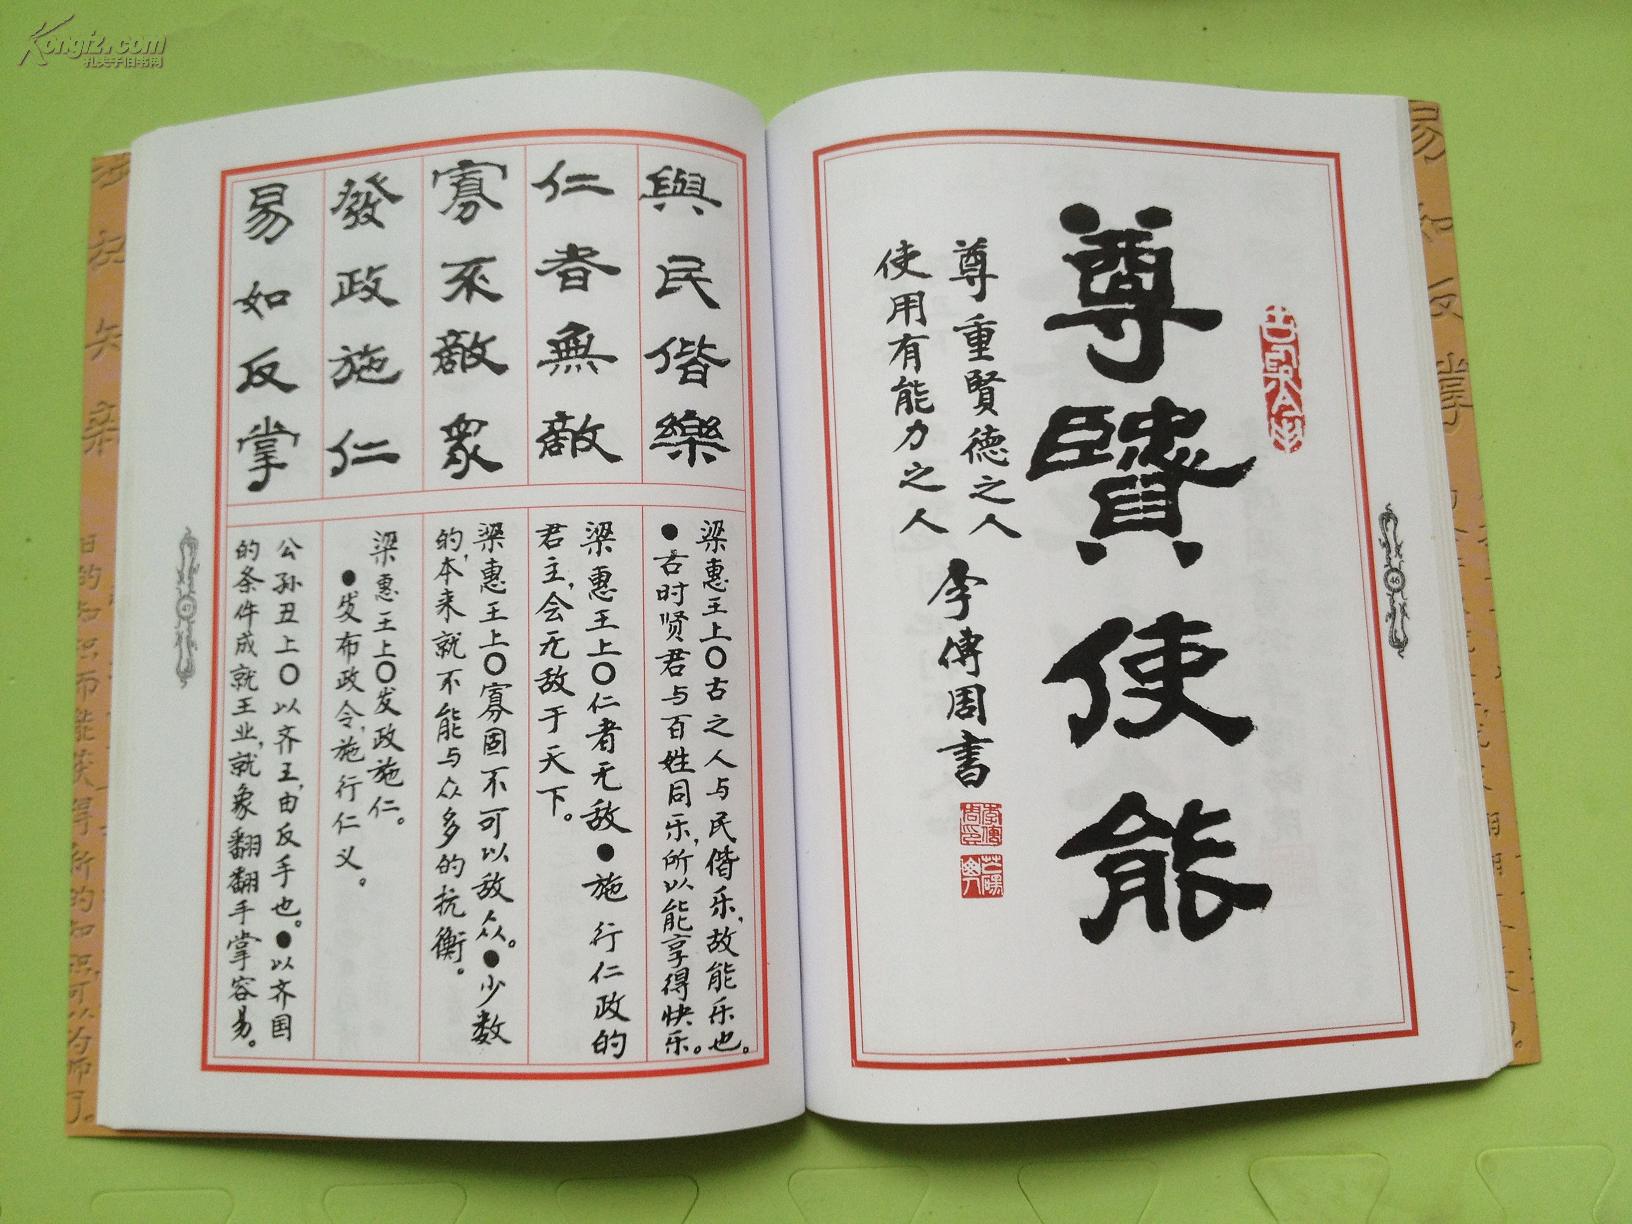 Kongfz.com
孔夫子旧书网
尊賢使能
尊重賢德之人
使用有能力之人
李傳周書
46
與民偕樂
仁者無敵
寡不敵衆
發政施仁
易如反掌
梁惠王上〇古之人与民偕乐,故能乐也。
●古时贤君与百姓同乐,所以能享得快乐。
梁惠王上〇仁者无敌●施行仁政的
君主,会无敌于天下。
梁惠王上〇寡固不可以敌众。●少数
的,本来就不能与众多的抗衡。
梁惠王上〇发政施仁。
●发布政令,施行仁义。
公孙丑上〇以齐王,由反手也。●以齐国
的条件成就王业,就象翻翻手掌容易。
47
易如反掌